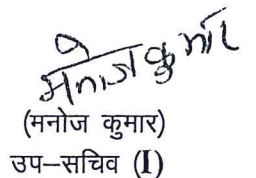 मनोज कुमार
(मनोज कुमार)
उप-सचिव (I)